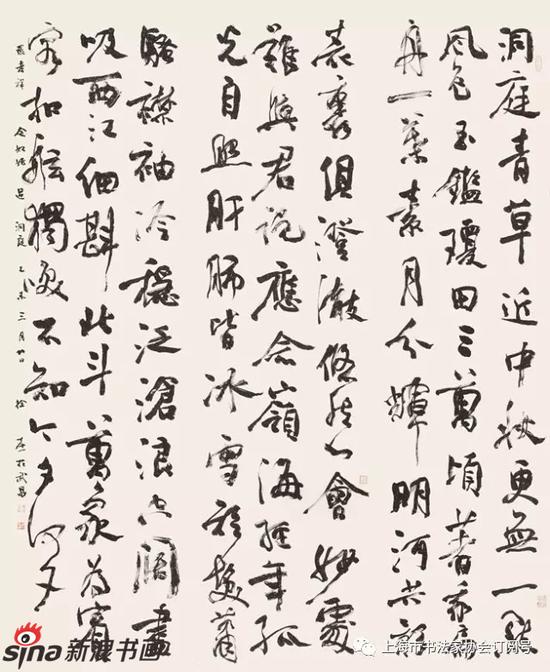 洞庭青草近中秋更無一點
風色玉鑑瓊田三萬頃著我扁
舟一葉素月分輝明河共影
表裏俱澄澈悠然心會妙處
難與君說應念嶺海經年孤
光自照肝肺皆冰雪短髮蕭
騷襟袖冷穩泛滄浪空闊盡
吸西江細斟北斗萬象為賓
客扣舷獨嘯不知今夕何夕
張孝祥 念奴嬌 過洞庭 乙未三月廿 徐 於武昌
sina新浪书画
上海市书法家协会订阅号